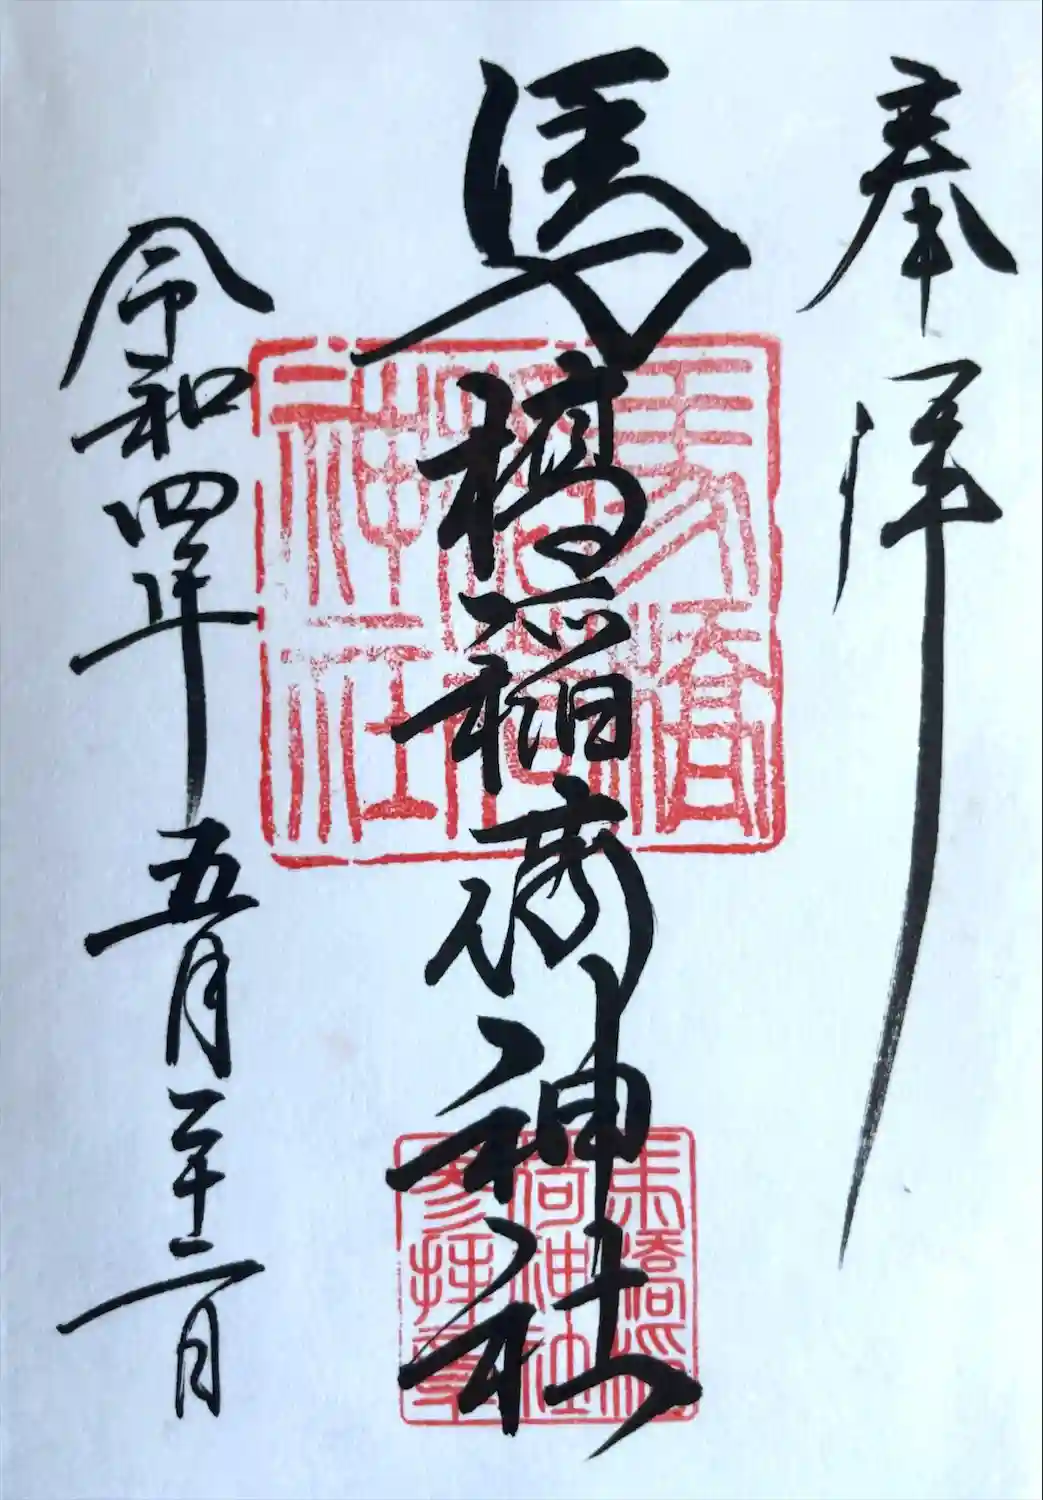 奉拝
馬橋稲荷神社
令和四年五月二十二日
馬橋
稲荷
神社
馬橋稲
荷神社
参拝